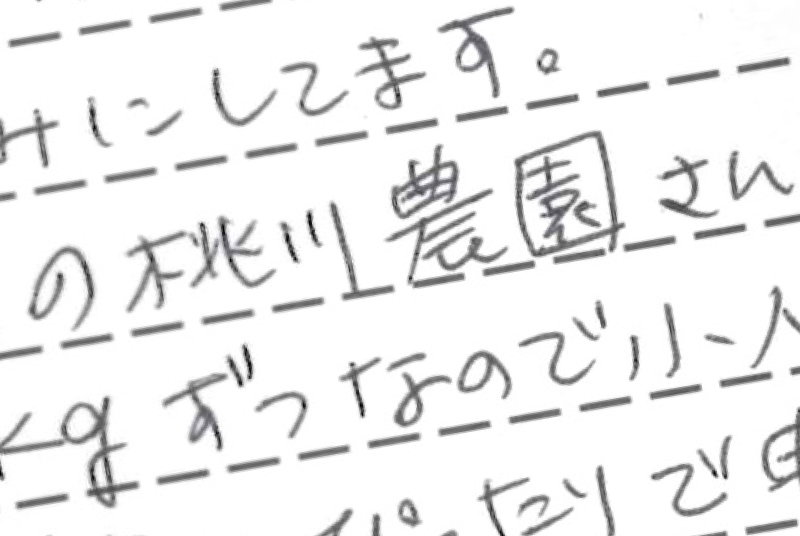 みにしてます。
の桃川農園さん
kgずつなのでり
ぴったりで